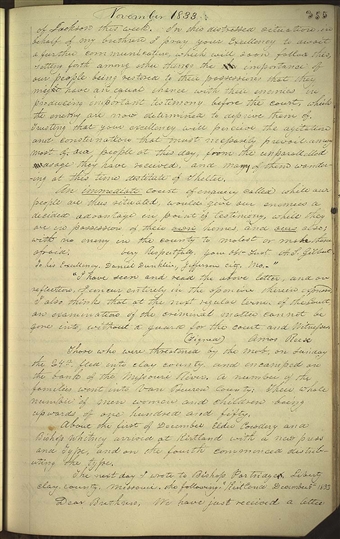 November 1833.
of Jackson this week. In this distressed situation, in
behalf of my brethren I pray your Excellency to await
a further communication, which will soon follow this,
setting forth among other things the importance of
our people being restored to their possessions that they
might have an equal chance with their enemies in
producing important testimony before the courts, which
the enemy are now determined to deprive them of.
Trusting that your excellency will perceive the agitation
and consternation that must necessarily prevail among
most of our people at this day, from the unparallelled
usage they have received, and many of them wander-
ing at this time destitute of shelter.
An immediate court of enquiry called while our
people are thus situated, would give our enemies a
decided advantage in point of testimony, while they
are in possession of their own homes, and ours also;
with no enemy in the county to molest or make them
afraid. Very respectfully, your Obt Servt
To his Excellency, Daniel Dunklin, Jefferson City, Mo."
"I have seen and read the above letter, and on
reflection, I concur entirely in the opinion therein expressed
I also think that at the next regular term of the court
an examination of the criminal matter cannot be
gone into, without a guard for the court and Witnesses
(Signed) Amos Reed
Those who were threatened by the mob on Sunday
the 24th. fled into clay county and encamped on
the bank of the Missouri River. A number of the
families went into Van Buren County. Their whole
number of men women and children being
upwards of one hundred and fifty.
About the first of December Elder Cowdery and
Bishop Whitney arrived at Kirtland with a new press
and type, and on the fourth commenced distrib-
uting the type.
The next day I wrote to Bishop Partridge, Liberty
Clay county, Missouri, the following; "Kirtland December 5th 1833
Dear Brethren, We have just received a letter